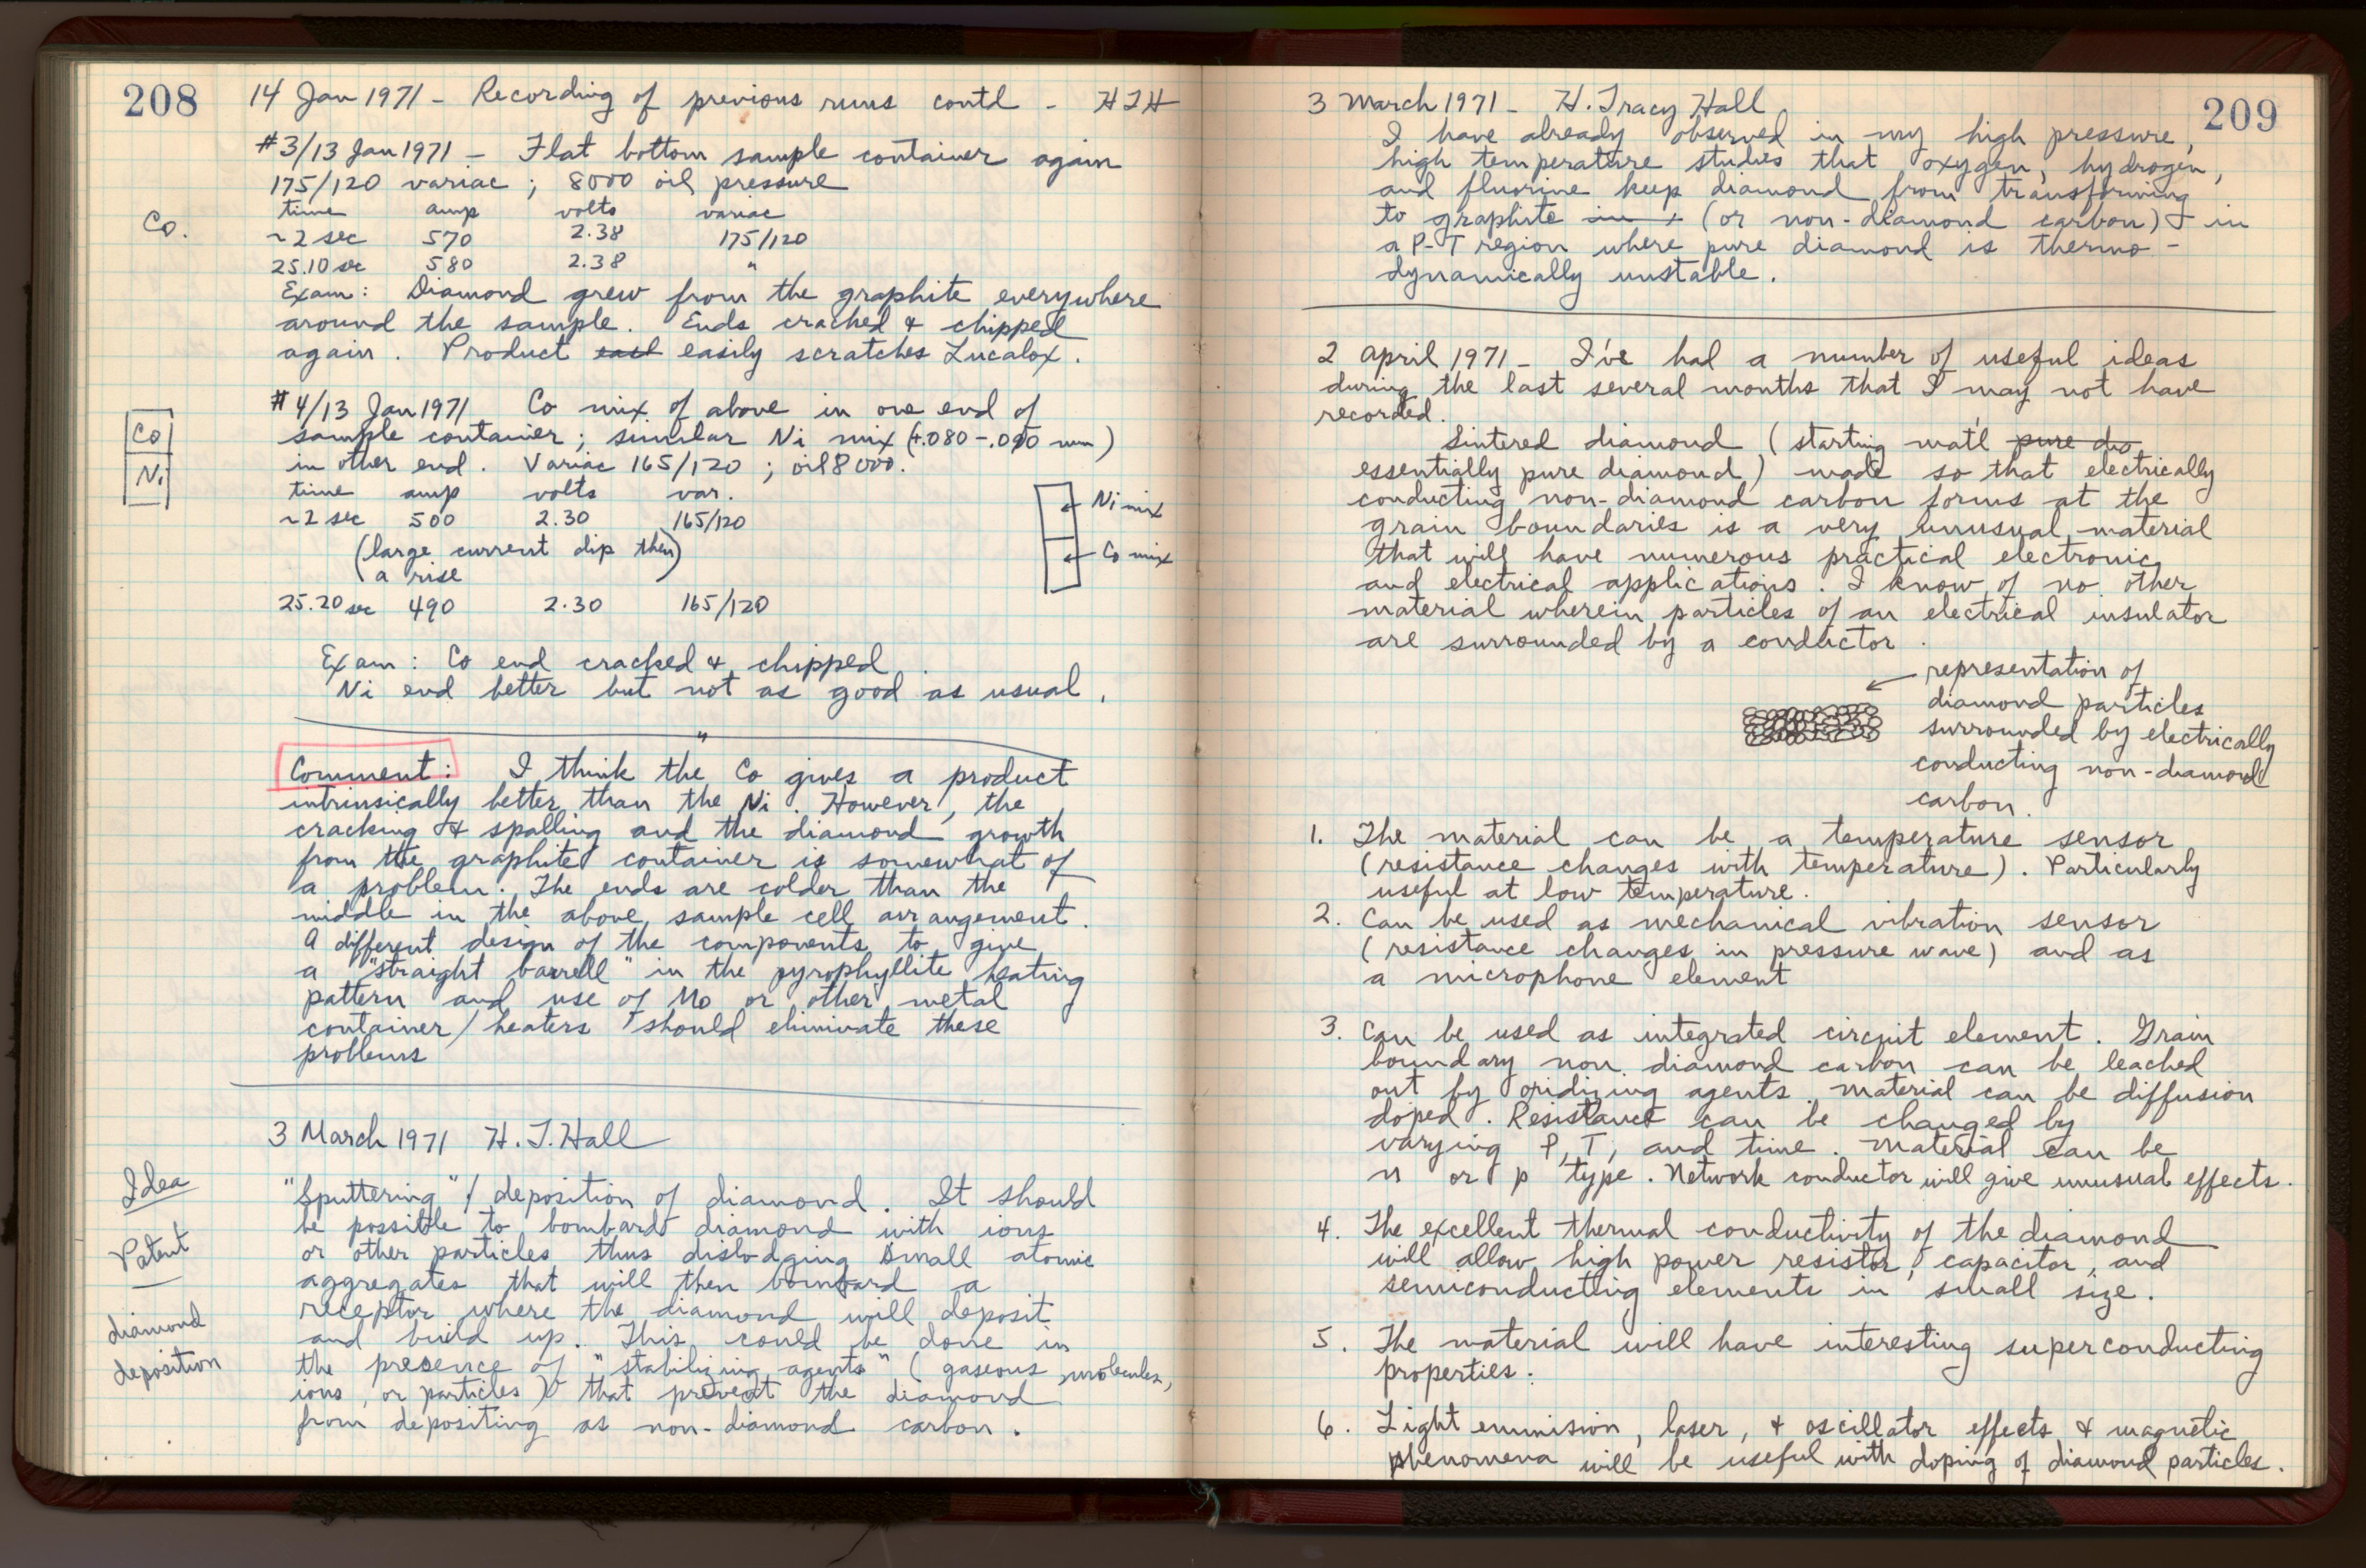 208
14 Jan 1971 - Recording of previous runs contd - HTH
#3/13 Jan 1971 - Flat bottom sample container again
175/120 variac ; 8000 oil pressure
time amp volts variac
Co.
~2 sec 570 2.38 175/120
25.10 sec 580 2.38 "
Exam: Diamond grew from the graphite everywhere
around the sample. Ends cracked & chipped
again. Product easil easily scratches Lucalox.
#4/13 Jan 1971 Co mix of above in one end of
sample container; similar Ni mix (+.080 - mm)
in other end. Variac 165/120 ; oil 8000.
Co
Ni
time amp volts var.
~2 sec 500 2.30 165/120
(large current dip then)
a rise
25.20 sec 490 2.30 165/120
Ni mix
Co mix
Exam: Co end cracked & chipped.
Ni end better but not as good as usual.
"
Comment: I think the Co gives a product
intrinsically better than the Ni. However, the
cracking & spalling and the diamond growth
from the graphite container is somewhat of
a problem. The ends are colder than the
middle in the above sample cell arrangement.
A different design of the components to give
a "straight barrell" in the pyrophyllite heating
pattern and use of Mo or other metal
container/heaters should eliminate these
problems
3 March 1971 H. T. Hall
Idea
Patent
diamond
deposition
"Sputtering"/deposition of diamond. It should
be possible to bombard diamond with ions
or other particles thus dislodging small atomic
aggregates that will then bombard a
receptor where the diamond will deposit
and build up. This could be done in
the presence of "stabilizing agents" (gaseous molecules,
ions, or particles) that prevent the diamond
from depositing as non-diamond carbon.
209
3 March 1971 - H. Tracy Hall
I have already observed in my high pressure,
high temperature studies that oxygen, hydrogen,
and fluorine keep diamond from transforming
to graphite in (or non-diamond carbon) in
a P-T region where pure diamond is thermo-
dynamically unstable.
2 April 1971 - I've had a number of useful ideas
during the last several months that I may not have
recorded.
Sintered diamond (starting mat'l pure dia
essentially pure diamond) made so that electrically
conducting non-diamond carbon forms at the
grain boundaries is a very unusual material
that will have numerous practical electronic
and electrical applications. I know of no other
material wherein particles of an electrical insulator
are surrounded by a conductor.
representation of
diamond particles
surrounded by electrically
conducting non-diamond
carbon.
1. The material can be a temperature sensor
(resistance changes with temperature). Particularly
useful at low temperature.
2. Can be used as mechanical vibration sensor
(resistance changes in pressure wave) and as
a microphone element
3. Can be used as integrated circuit element. Grain
boundary non diamond carbon can be leached
out by oxidizing agents. Material can be diffusion
doped. Resistance can be changed by
varying P, T, and time. Material can be
n or p type. Network conductor will give unusual effects.
4. The excellent thermal conductivity of the diamond
will allow high power resistor, capacitor, and
semiconducting elements in small size.
5. The material will have interesting superconducting
properties.
6. Light emmision, laser, & oscillator effects & magnetic
phenomena will be useful with doping of diamond particles.